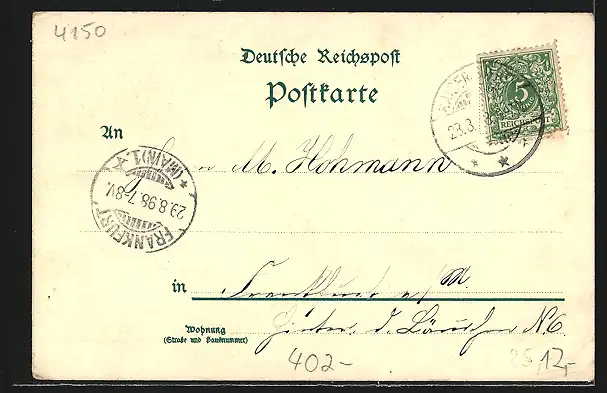 4150
Deutsche Reichspost
Postkarte
5
REICHSPOST
23.3
An
Herrn M. Hohmann
FRANKFURT
29.8.98.7-8V.
*(MAIN)1.*
in Frankfurt a/M
Wohnung
(Straße und Hausnummer)
Hinter. d. N6.
402-
25,12,-